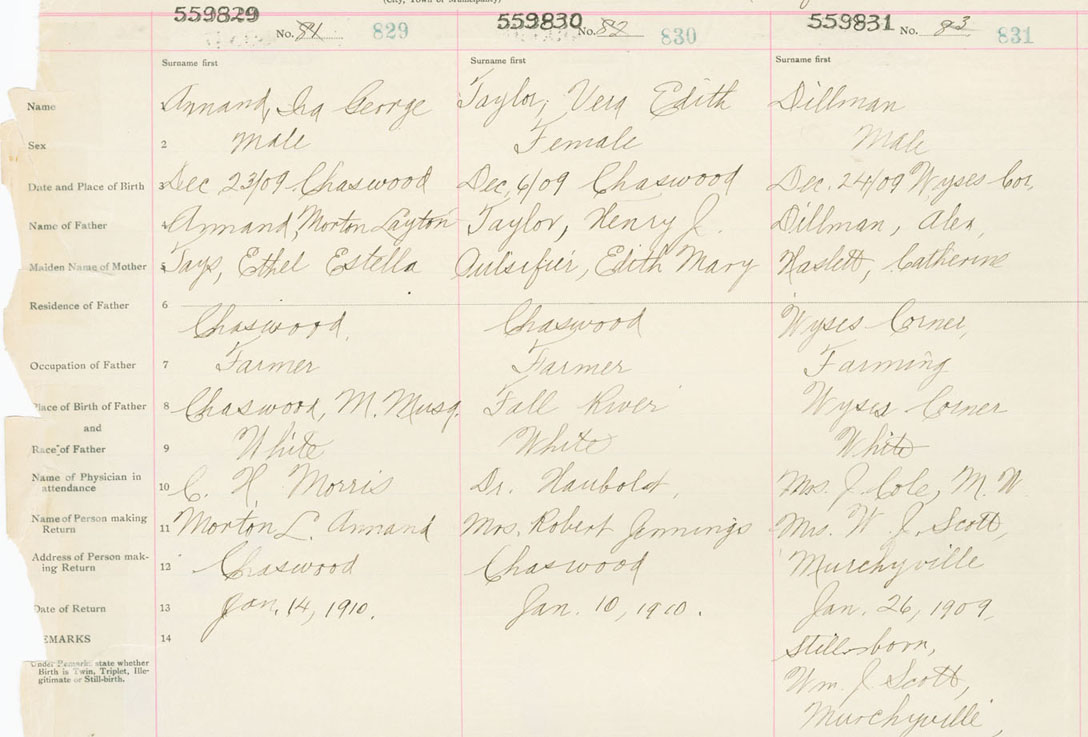 (City, Town or Municipality)
559829 559830 559831
No. 81 829 No. 82 830 No. 83 831
Surname first Surname first Surname first
Name 1 Annand, Ira George Taylor, Vera Edith Dillman
Sex 2 Male Female Male
Date and Place of Birth 3 Dec 23/09 Chaswood Dec, 6/09 Chaswood Dec. 24/09 Wyses Cor,
Name of Father 4 Annand, Morton Layton Taylor, Henry J. Dillman, Alex,
Maiden Name of Mother 5 Tays, Ethel Estella Aulsifier, Edith Mary Haslett, Catherine
Residence of Father 6
Chaswood, Chaswood Wyses Corner,
Occupation of Father 7 Farmer Farmer Farming
Place of Birth of Father 8 Chaswood, M. Musq. Fall River Wyses Corner
and
Race of Father 9 White White White
Name of Physician in
attendance 10 C. H. Morris Dr. Haubold, Mrs. J. Cole, M. W.
Name of Person making
Return 11 Morton L. Annand Mrs. Robert Jennings Mrs. W. J. Scott,
Address of Person mak-
ing Return 12 Chaswood Chaswood Murchyville
Date of Return 13 Jan. 14, 1910. Jan. 10, 1910. Jan. 26, 1909,
EMARKS 14 Stillborn,
Under Remarks state whether
Birth is Twin, Triplet, Ille-
gitimate or Still-birth.
Wm. J. Scott,
Murchyville,